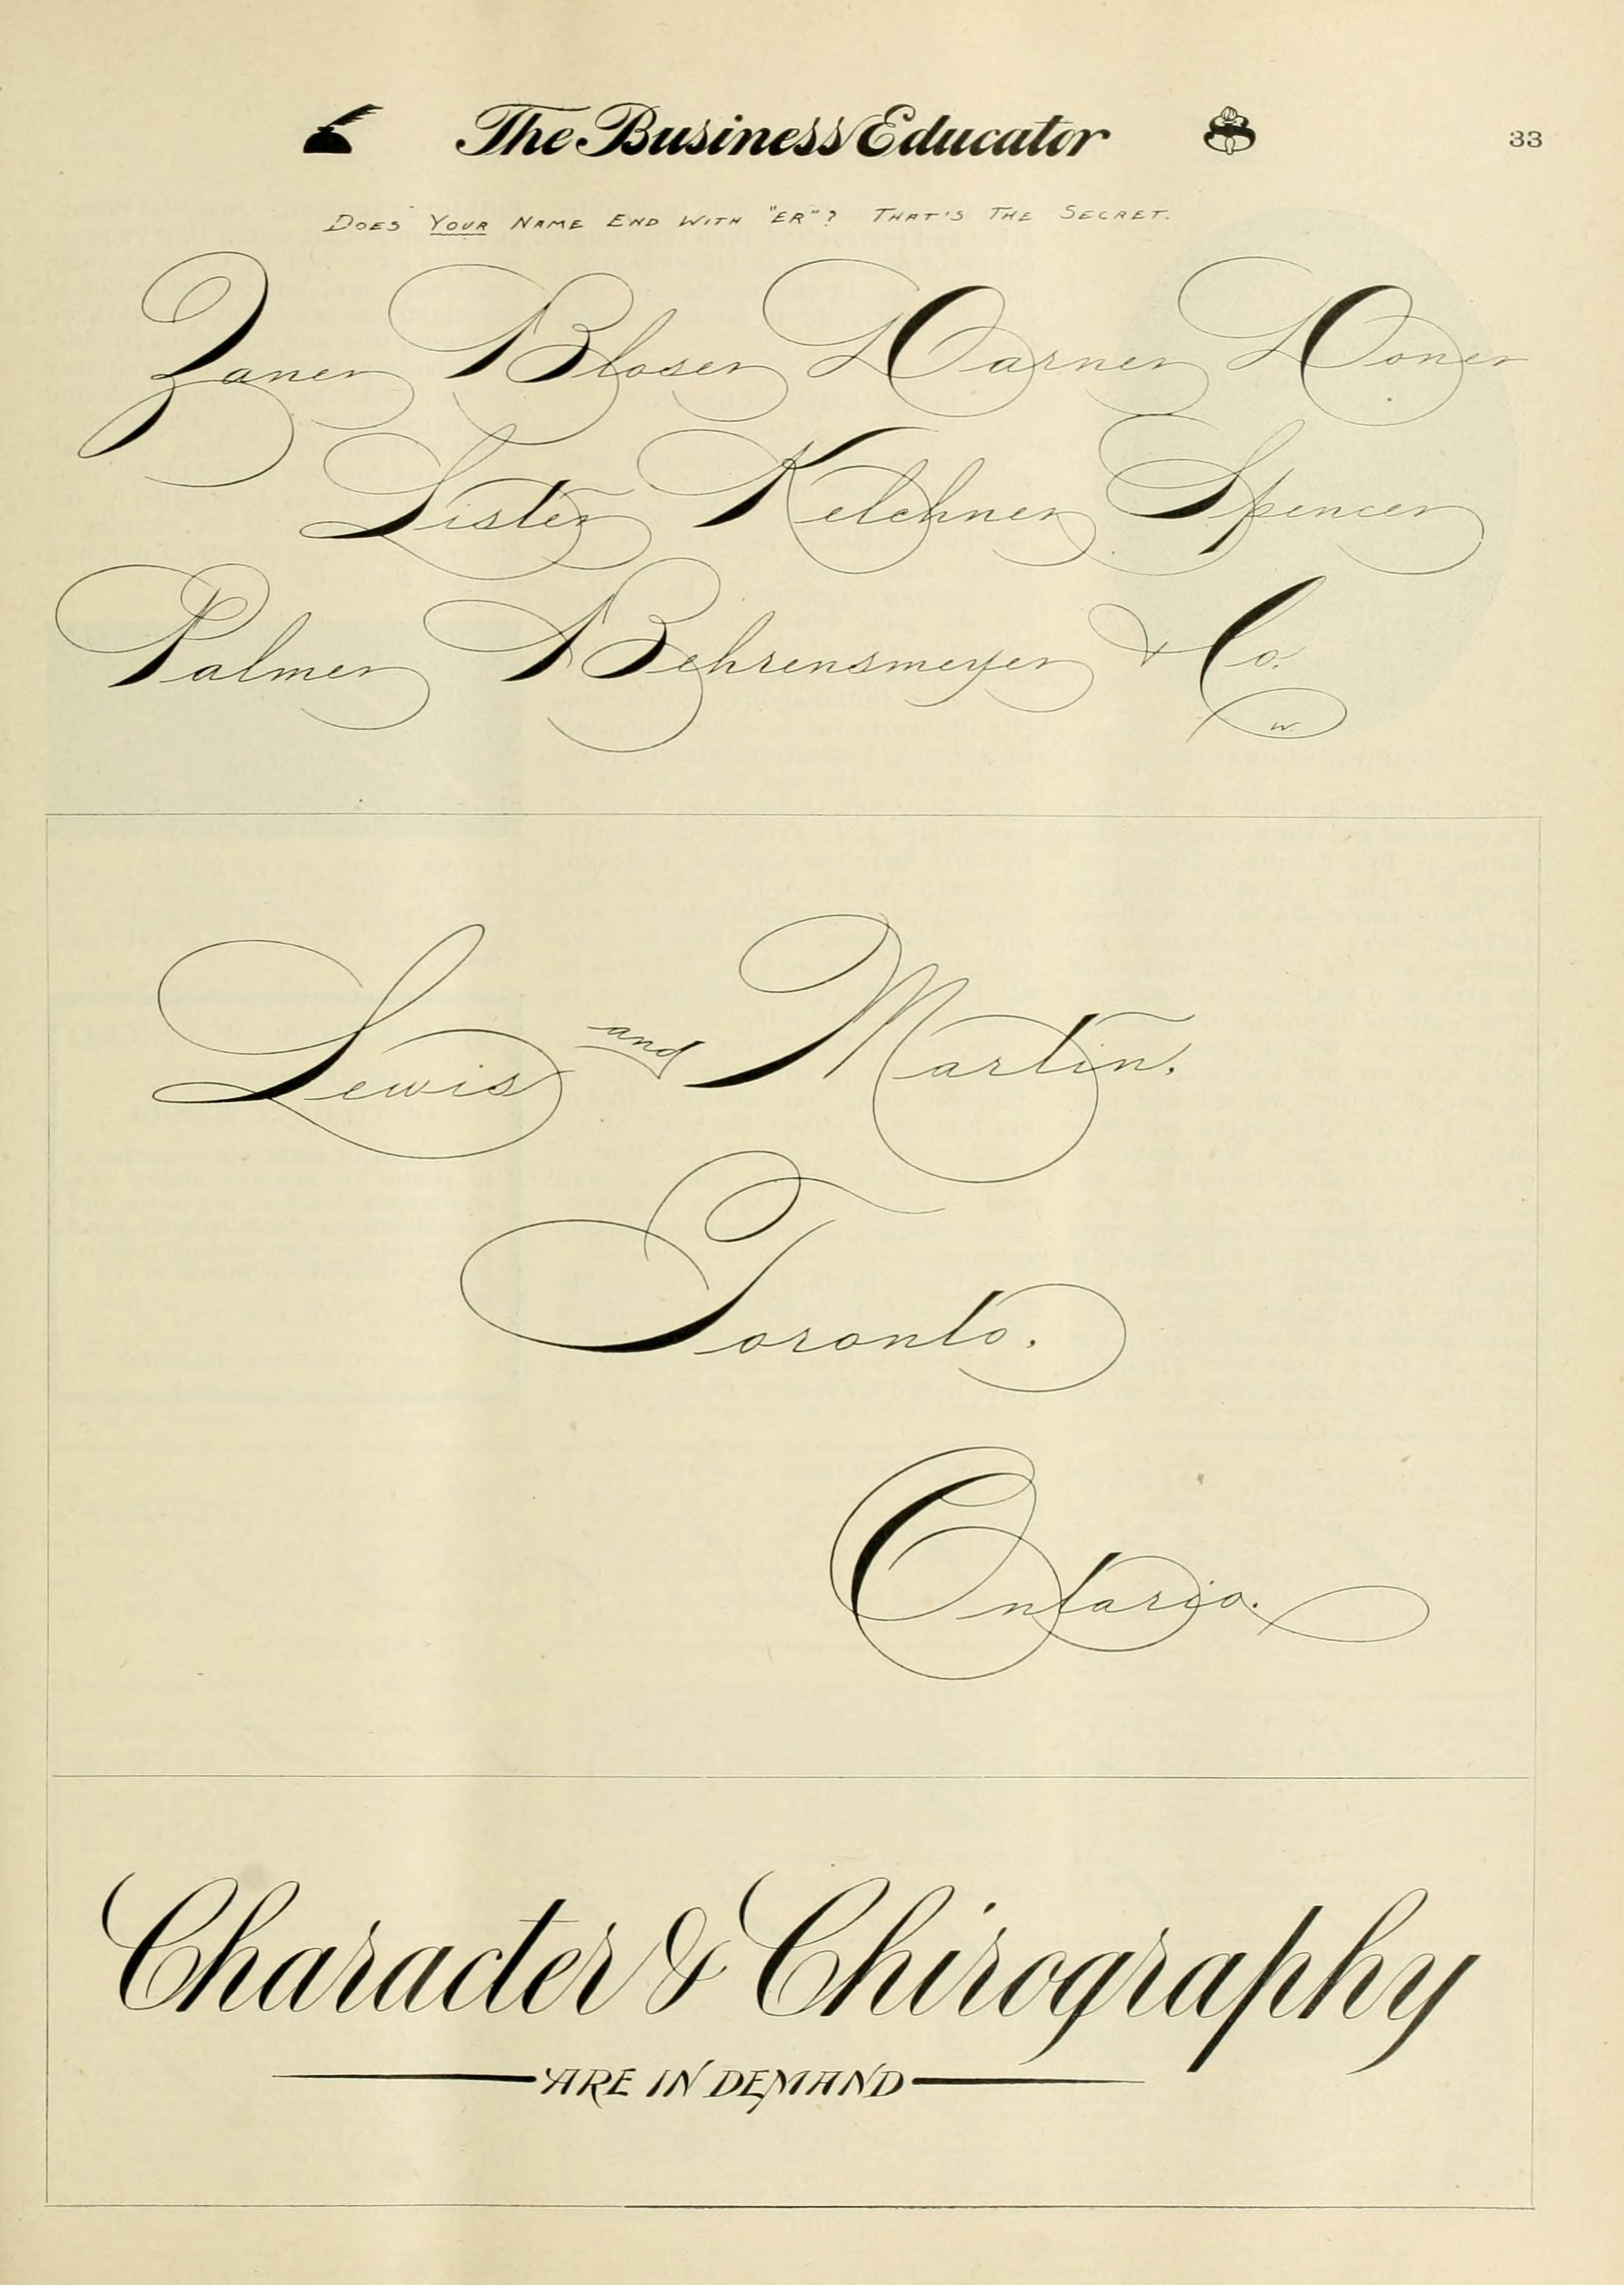 The Business Educator 33
DOES YOUR NAME END WITH "ER"? THAT'S THE SECRET.
Zaner Bloser Darner Doner
Lister Kelchner Spencer
Palmer Behrensmeyer & Co.
W.
Lewis and Martin.
Toronto.
Ontario.
Character & Chirography
ARE IN DEMAND